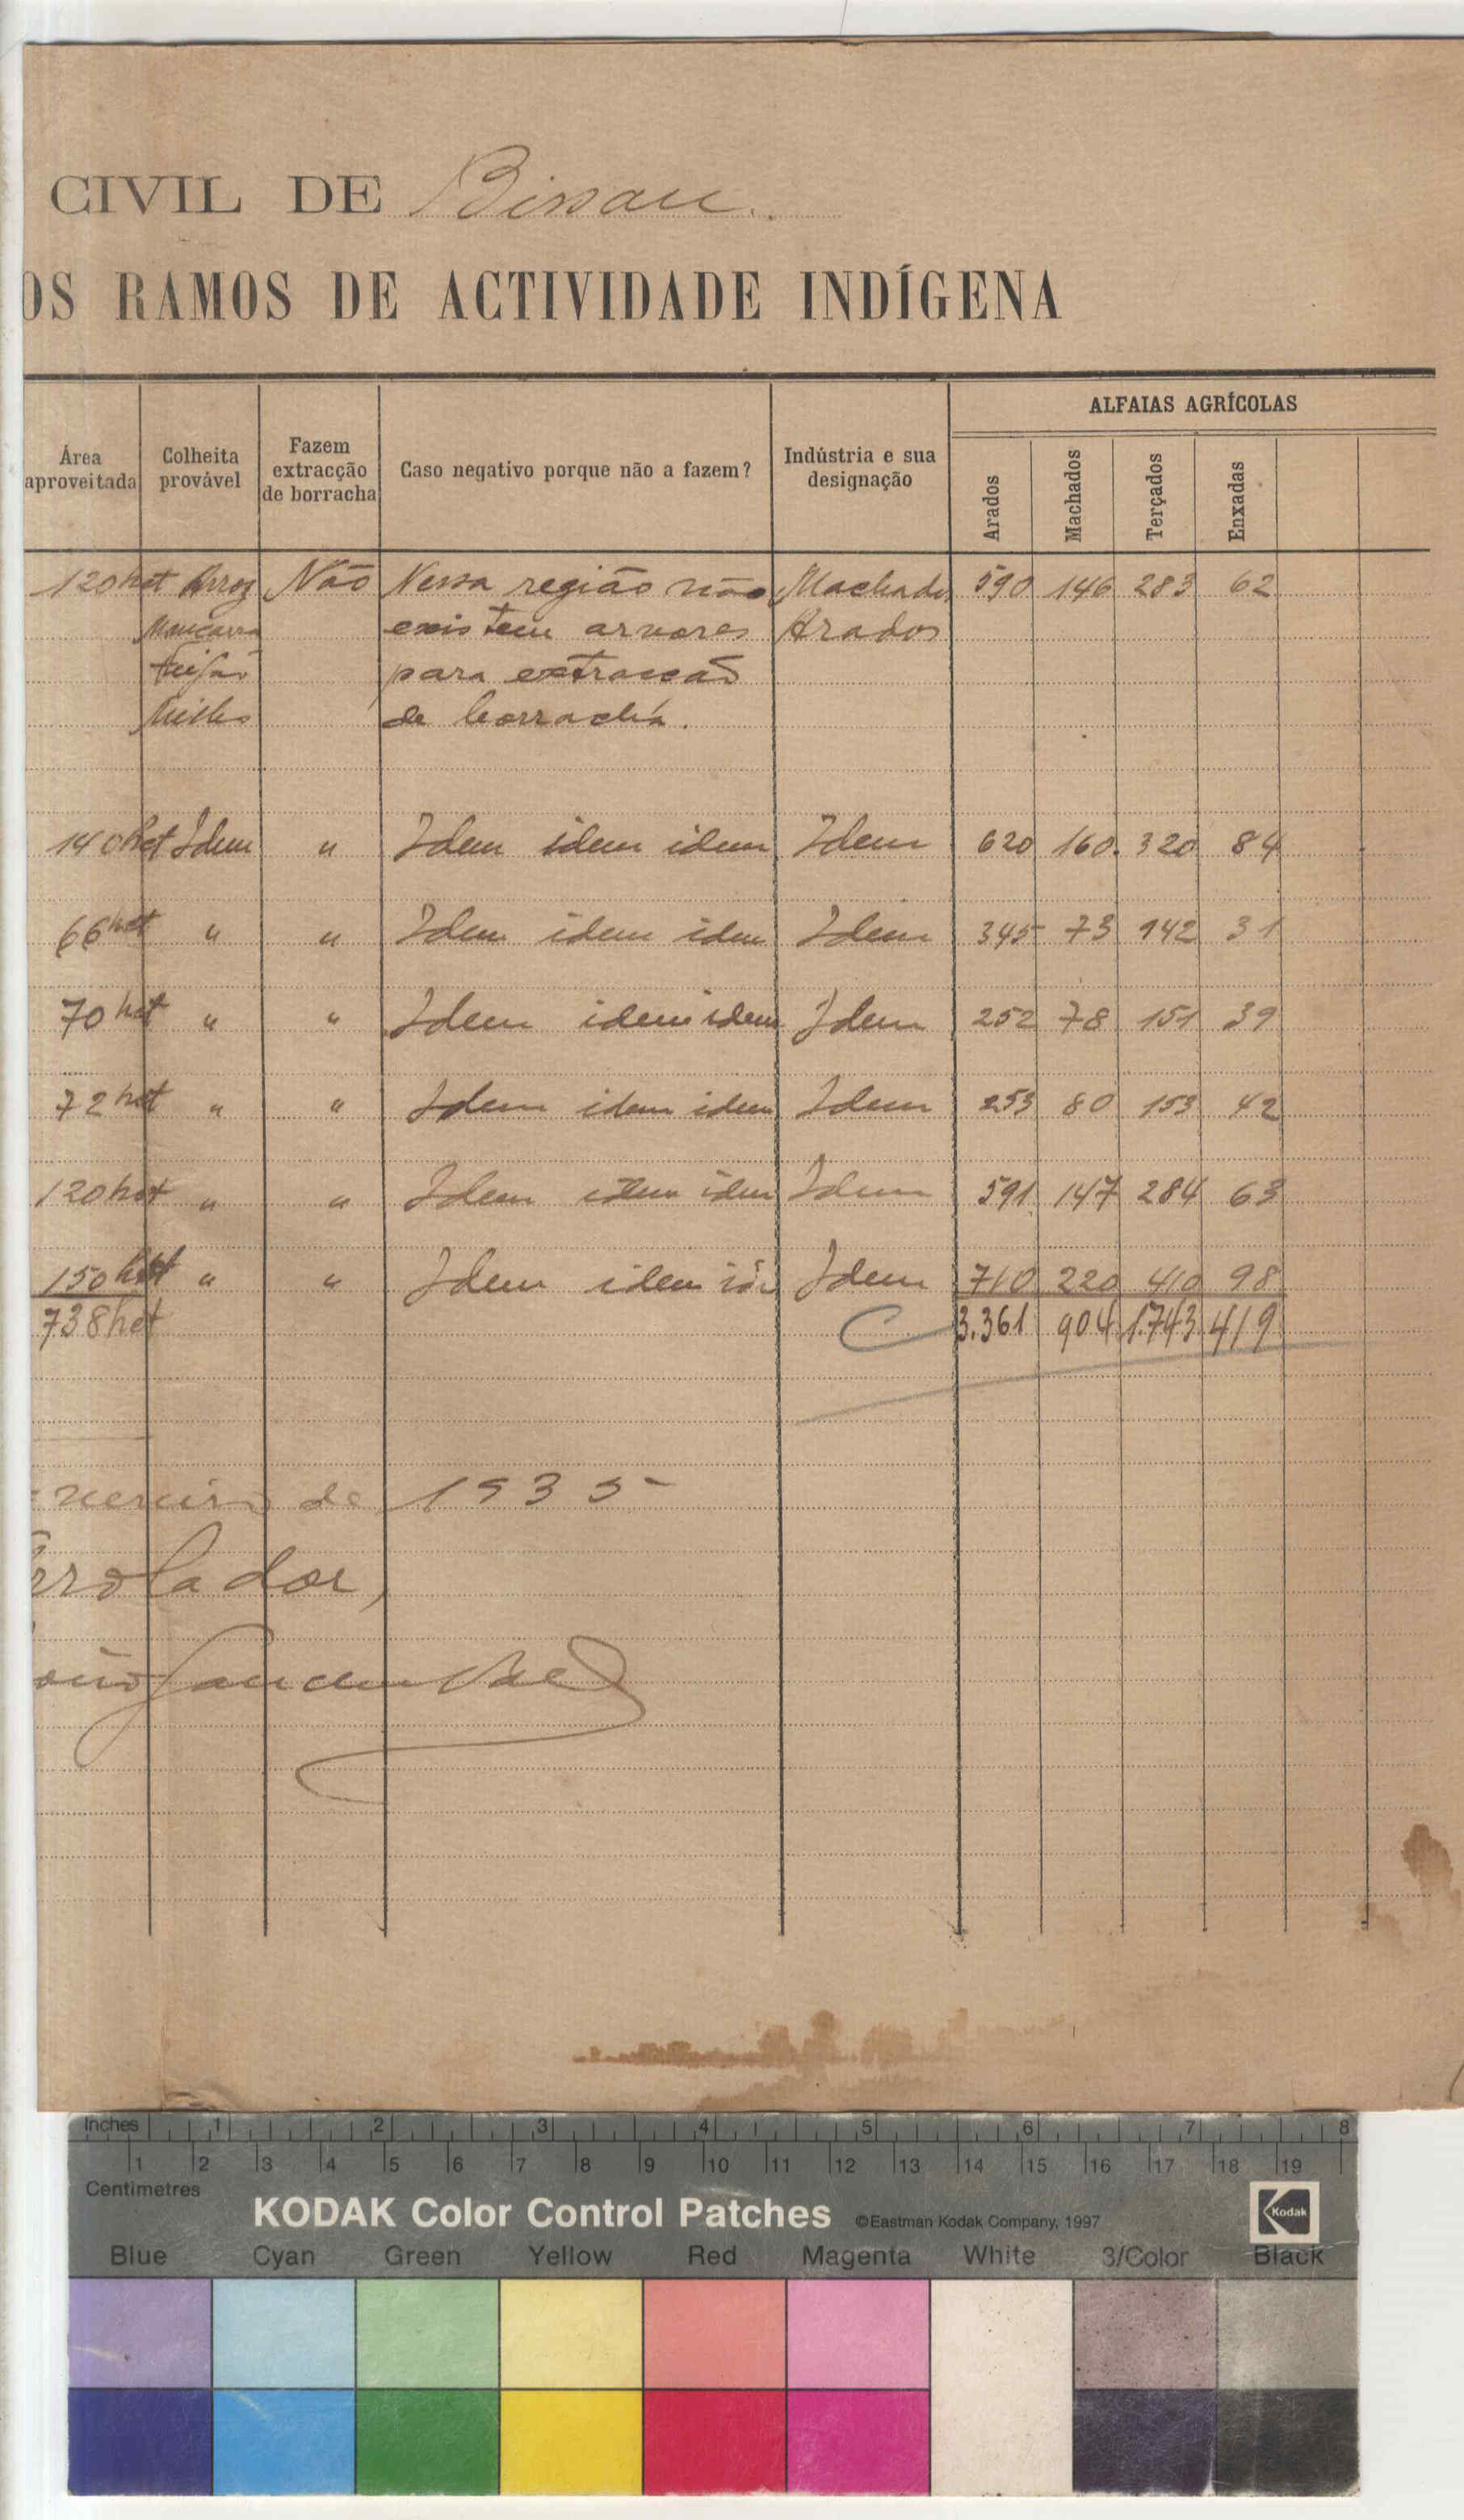 CIVIL DE Bissau
OS RAMOS DE ACTIVIDADE INDÍGENA
Área aproveitada
Colheita provável
Fazem extracção de borracha
Caso negativo porque não a fazem?
Indústria e sua designação
ALFAIAS AGRÍCOLAS
Arados Machados Terçados Enxadas
120 het Arroz Não Nessa região não Machados 590 146 283 62
Mancarra existem arvores Arados
Feijão para extracção
Milho de borracha.
140 het Idem " Idem idem idem Idem 620 160. 320 84
66 het " " Idem idem idem Idem 345 73 142 31
70 het " " Idem idem idem Idem 252 78 151 39
72 het " " Idem idem idem Idem 253 80 153 42
120 het " " Idem idem idem Idem 591 147 284 63
150 het " " Idem idem id. Idem 710 220 410 98
738 het 3.361 904 1.743 419
de 1935
rrolador,
Inches 1 2 3 4 5 6 7 8
1 2 3 4 5 6 7 8 9 10 11 12 13 14 15 16 17 18 19
Centimetres
KODAK Color Control Patches ©Eastman Kodak Company, 1997 Kodak
Blue Cyan Green Yellow Red Magenta White 3/Color Black